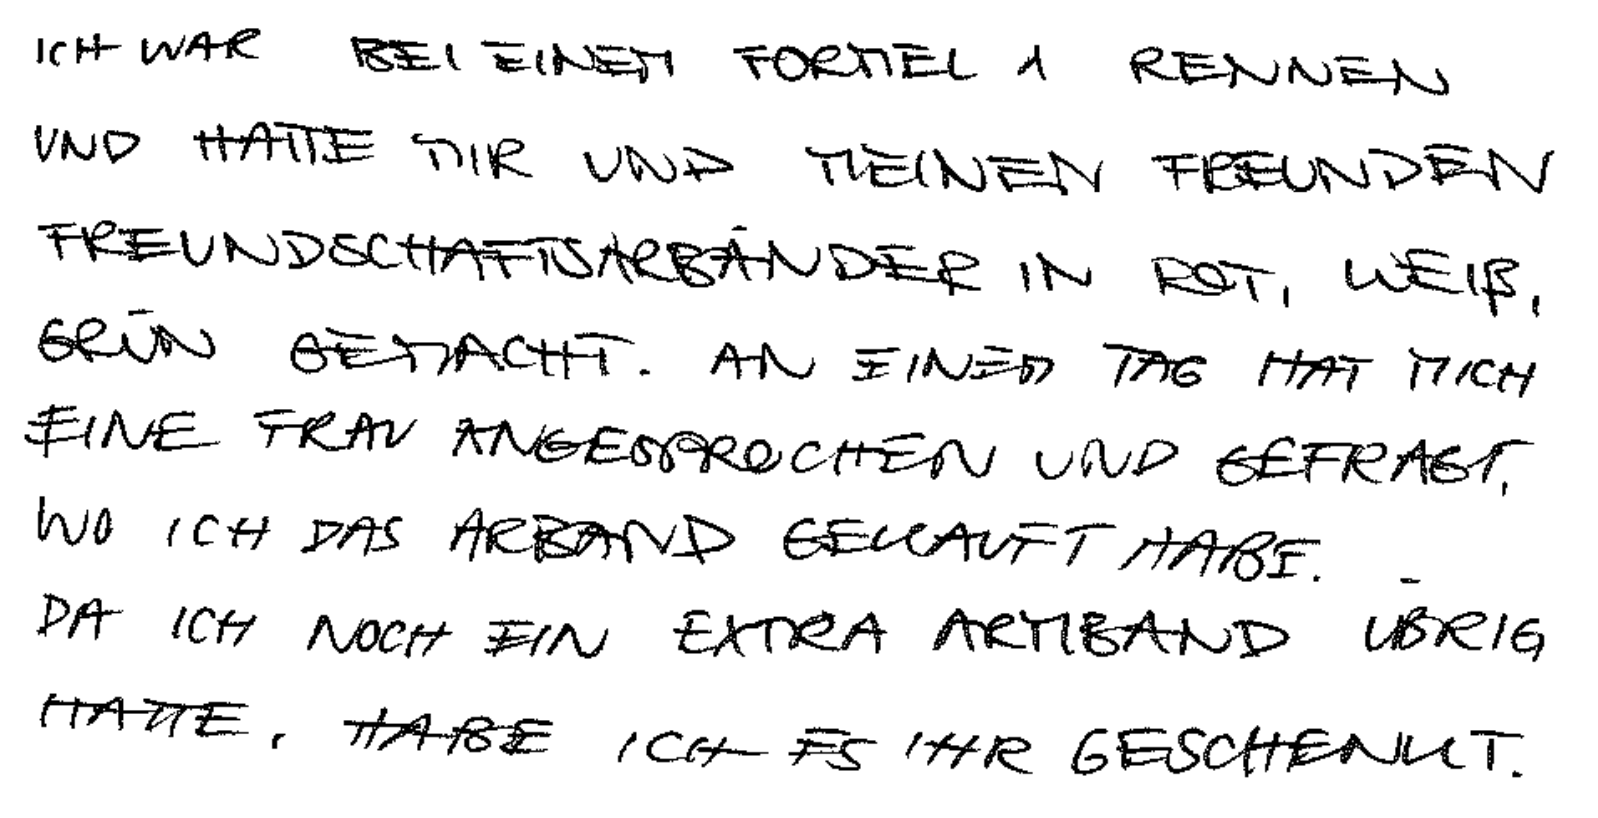 ICH WAR BEI EINEM FORMEL 1 RENNEN
UND HATTE MIR UND MEINEN FREUNDEN
FREUNDSCHAFTSARBÄNDER IN ROT, WEIß,
GRÜN GEMACHT. AN EINEM TAG HAT MICH
EINE FRAU ANGESPROCHEN UND GEFRAGT,
WO ICH DAS ARBAND GEKAUFT HABE.
DA ICH NOCH EIN EXTRA ARMBAND ÜBRIG
HATTE, HABE ICH ES IHR GESCHENKT.